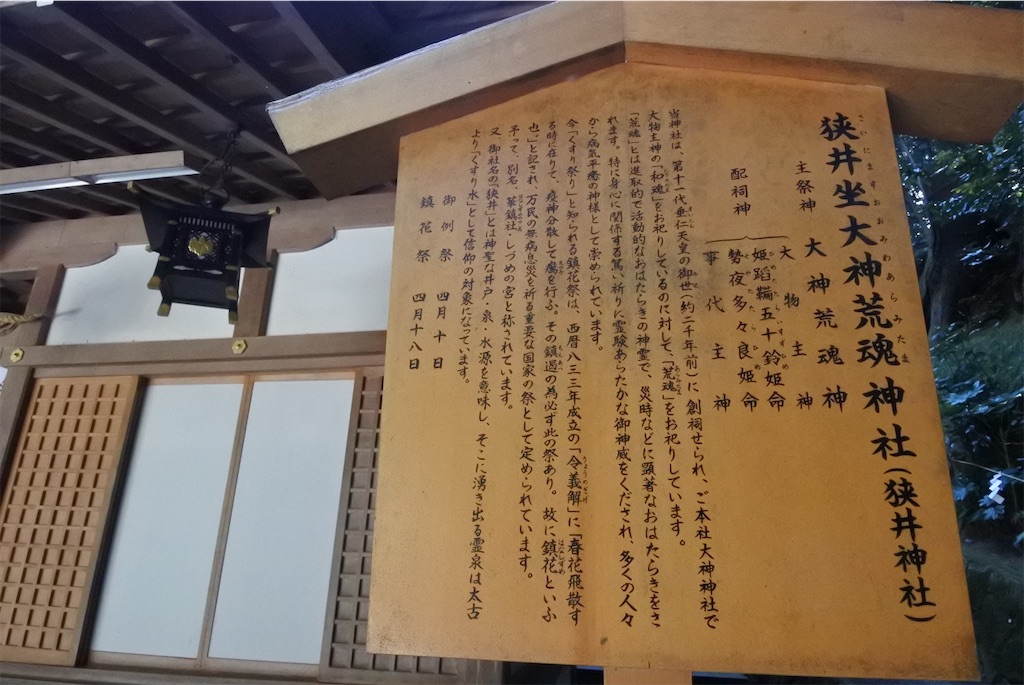 狭井坐大神荒魂神社(狭井神社)
さいにますおおみわあらみたま
主祭神 大神荒魂神
配祠神 大物主神
姫蹈鞴五十鈴姫命
ひめたたらいすずひめ
勢夜多々良姫命
せやたたらひめ
事代主神
当神社は、第十一代垂仁天皇の御世(約二千年前)に創祠せられ、ご本社大神神社で
大物主神の「和魂」をお祀りしているのに対して、「荒魂」をお祀りしています。
「荒魂」とは進取的で活動的なおはたらきの神霊で、災時などに顕著なおはたらきをさ
れます。特に身心に関係する篤い祈りに霊験あらたかな御神威をくだされ、多くの人々
から病気平癒の神様として崇められています。
今「くすり祭り」と知られる鎮花祭は、西暦八三三年成立の「令義解」に「春花飛散す
る時に在りて、疫神分散して癘を行ふ。その鎮遏の為必ず此の祭あり。故に鎮花といふ
也。」と記され、万民の無病息災を祈る重要な国家の祭として定められています。
予って、別名、華鎮社、しづめの宮と称されています。
又、御社名の「狭井」とは神聖な井戸・泉・水源を意味し、そこに湧き出る霊泉は太古
より「くすり水」として信仰の対象になっています。
御例祭 四月十日
鎮花祭 四月十八日